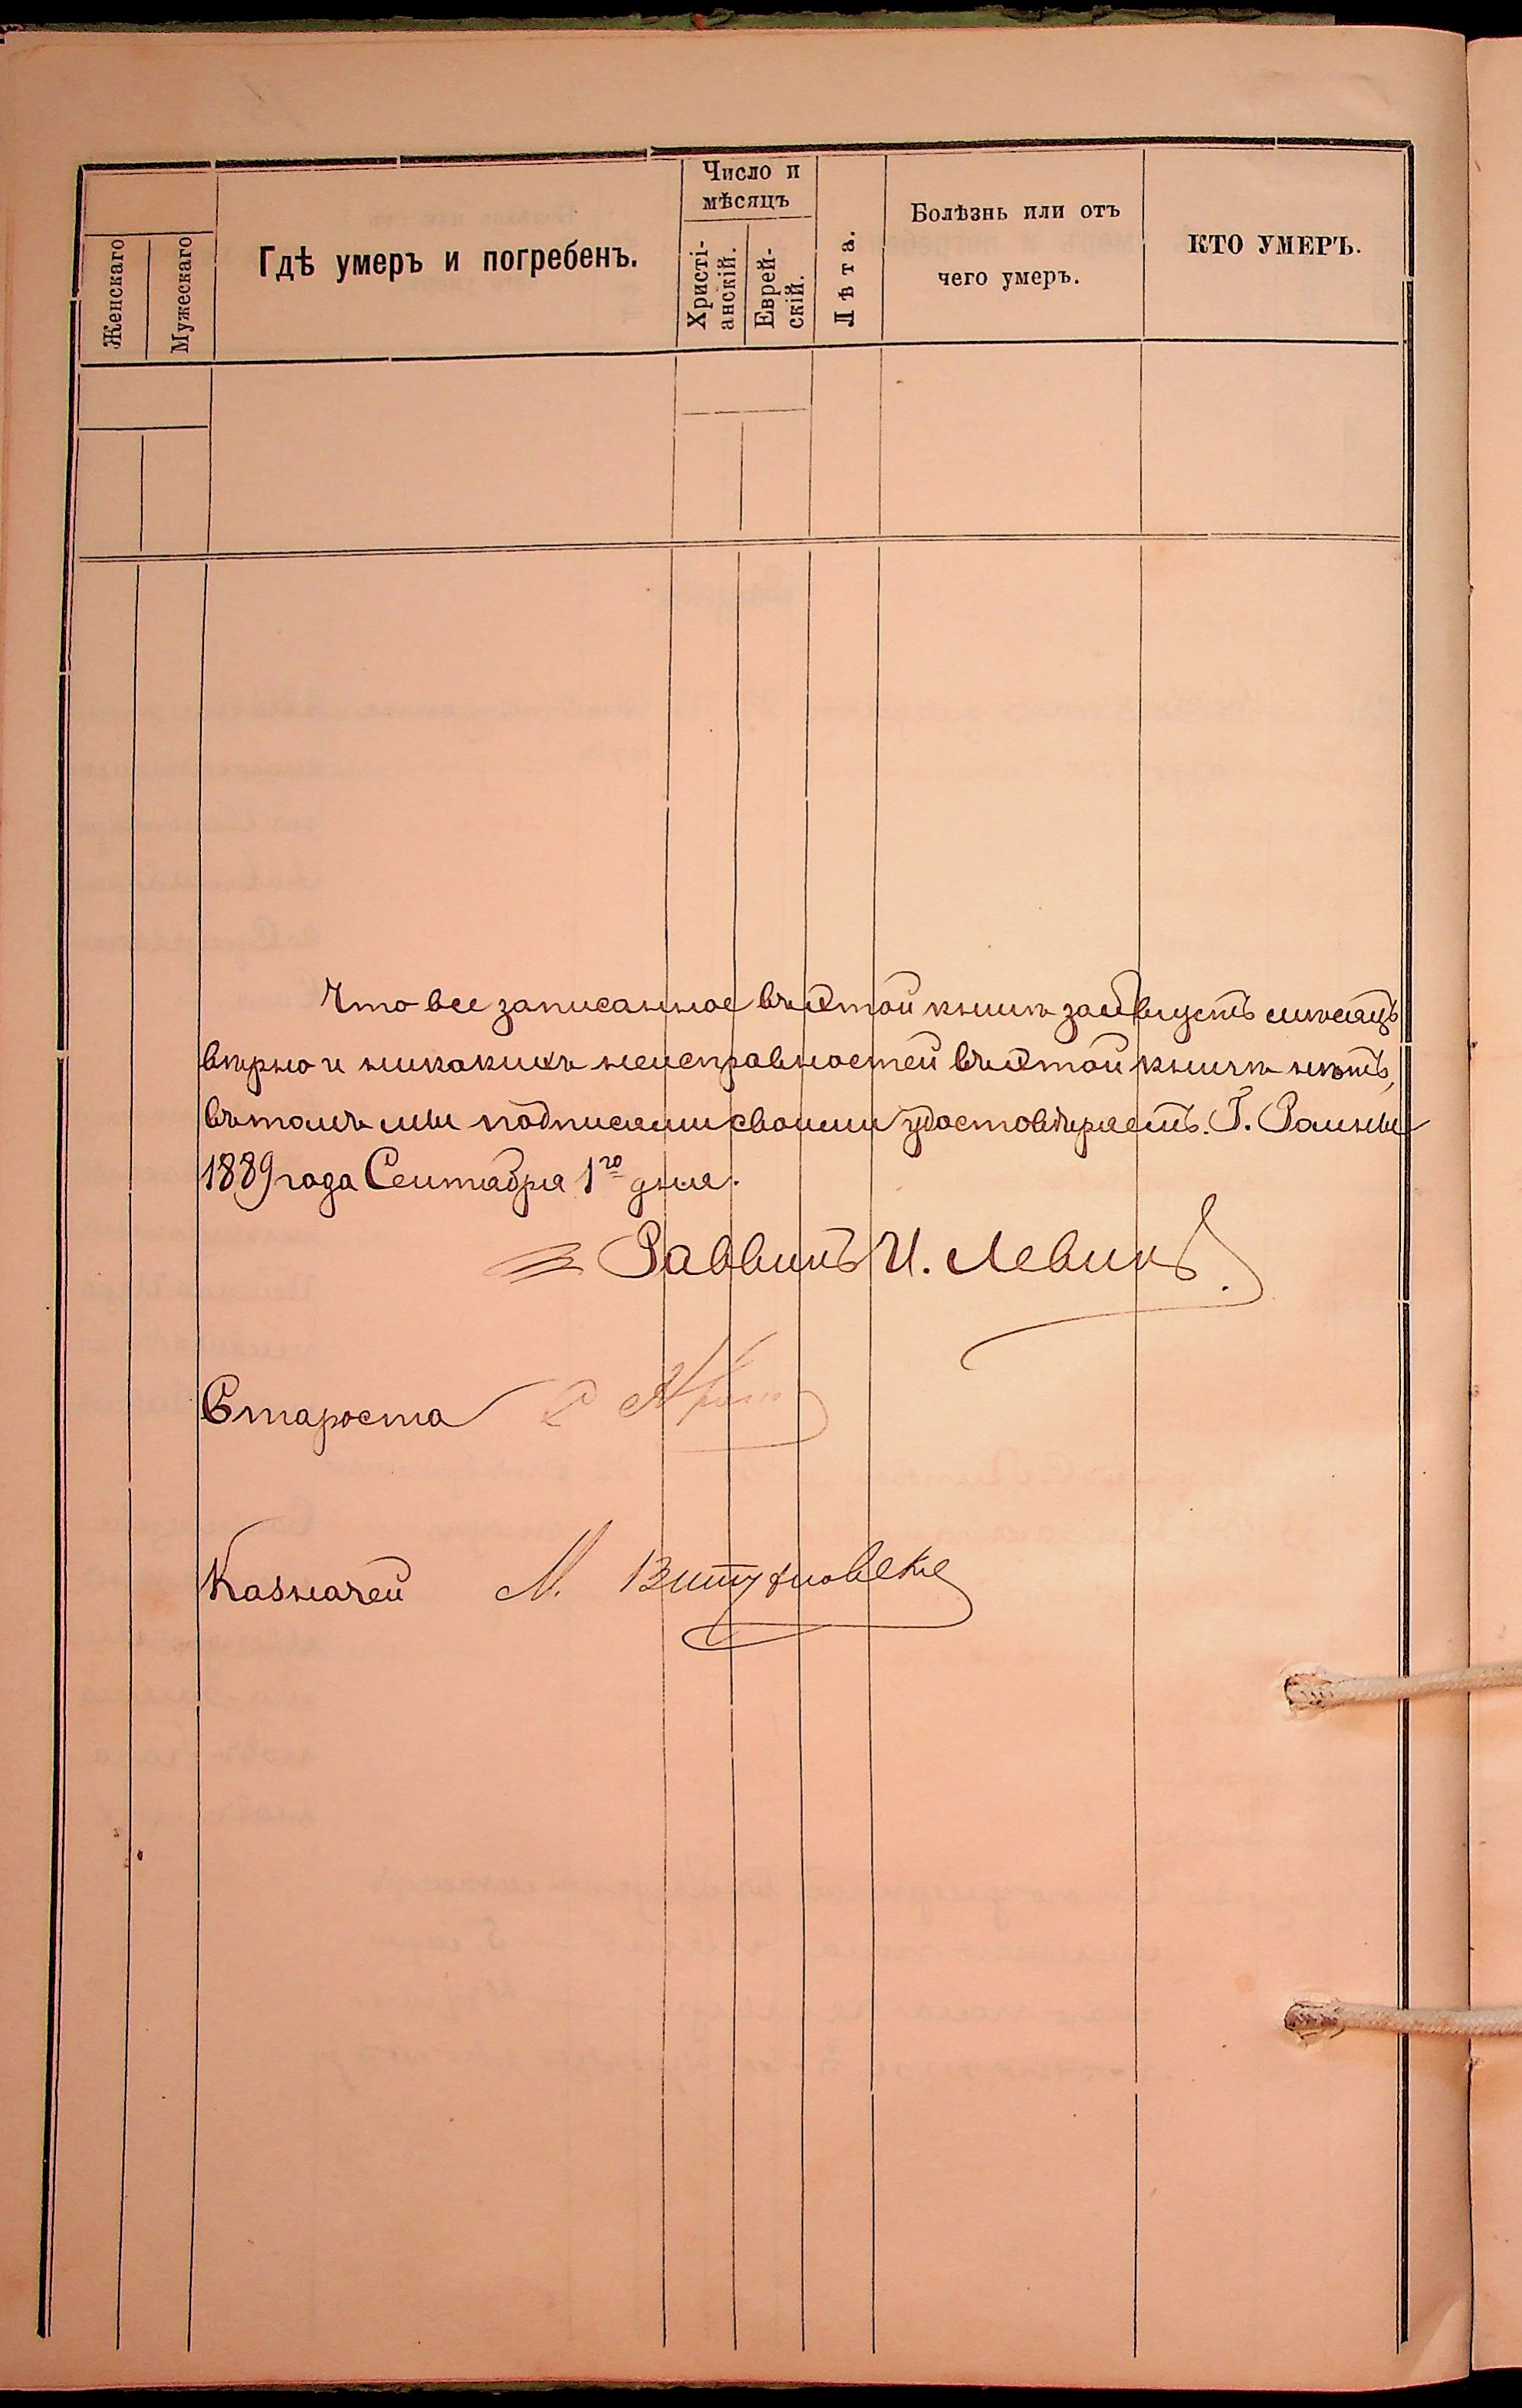 Женскаго
Мужескаго
Гдѣ умеръ и погребенъ.
Число и
мѣсяцъ
Христі-
анскій.
Еврей-
скій.
Лѣта.
Болѣзнь или отъ
чего умеръ.
КТО УМЕРЪ.
Что все записанное въ этой книгѣ за Августъ мѣсяцъ
вѣрно и никакихъ неисправностей въ этой книгѣ нѣтъ,
въ томъ мы подписами своими удостовѣряемъ. Г. Ромны
1889 года Сентября 1го дня.
Раввинъ И. Левинъ.
Староста
Казначей М.